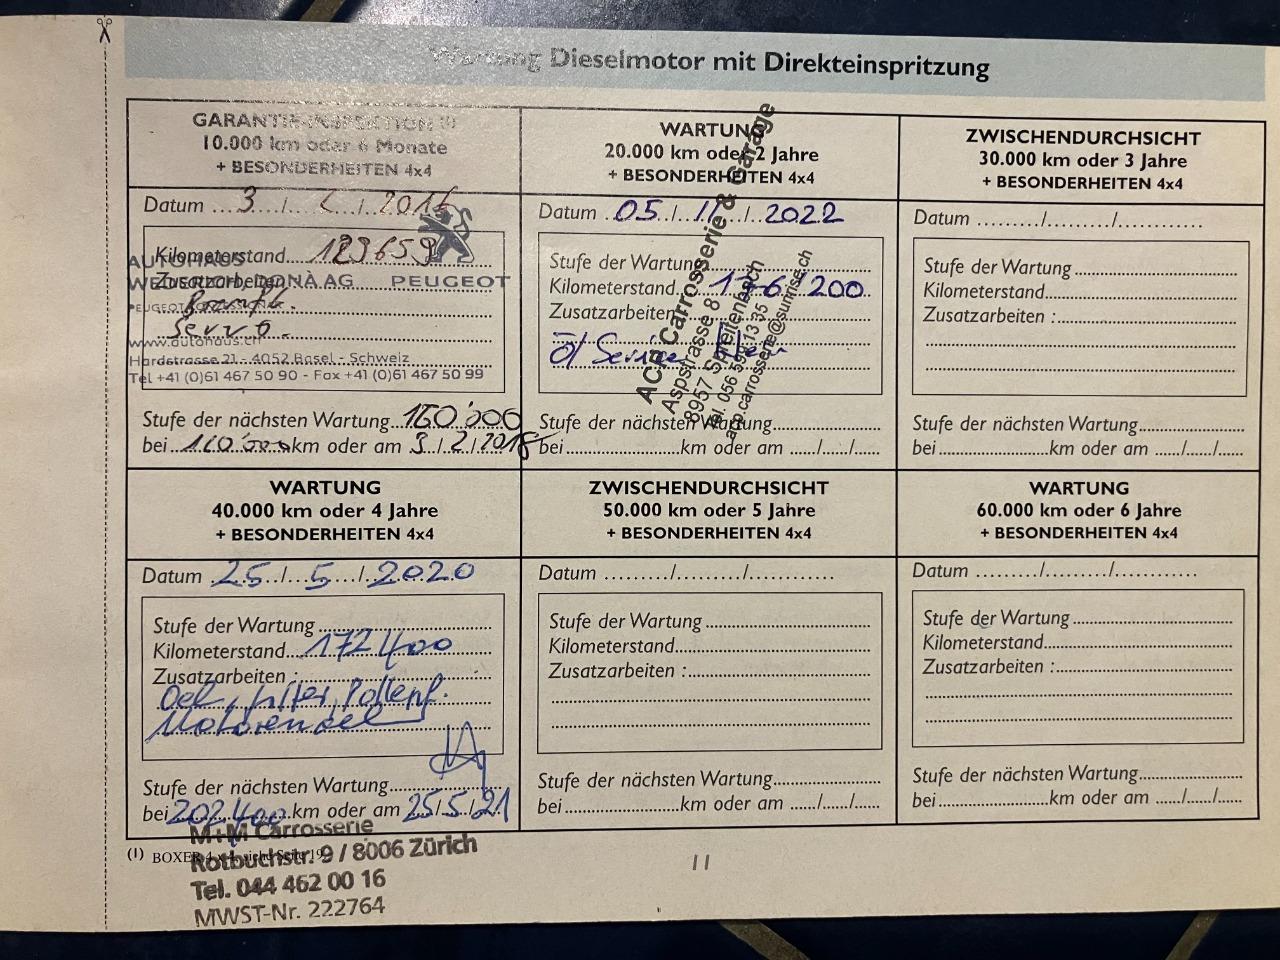 Wartung Dieselmotor mit Direkteinspritzung
GARANTIE-INSPEKTION (1)
10.000 km oder 6 Monate
+ BESONDERHEITEN 4x4
Datum 3 / 2 / 2016
Kilometerstand 123659
AUTOHAUS
Zusatzarbeiten
WEDERICH, DONÀ AG PEUGEOT
Bremfl.
Servo.
www.autohaus.ch
Hardstrasse 21 - 4052 Basel - Schweiz
Tel +41 (0)61 467 50 90 - Fax +41 (0)61 467 50 99
Stufe der nächsten Wartung 160'000
bei 160'000 km oder am 3/2/2018
WARTUNG
20.000 km oder 2 Jahre
+ BESONDERHEITEN 4x4
Datum 05 / 11 / 2022
Stufe der Wartung
Kilometerstand 176'200
Zusatzarbeiten
Öl Service
Stufe der nächsten Wartung
bei km oder am / /
ACP Carrosserie & Garage
Aspstrasse 8
8957 Spreitenbach
Tel. 056 599 13 35
acp.carrosserie@sunrise.ch
ZWISCHENDURCHSICHT
30.000 km oder 3 Jahre
+ BESONDERHEITEN 4x4
Datum / /
Stufe der Wartung
Kilometerstand
Zusatzarbeiten :
Stufe der nächsten Wartung
bei km oder am / /
WARTUNG
40.000 km oder 4 Jahre
+ BESONDERHEITEN 4x4
Datum 25 / 5 / 2020
Stufe der Wartung
Kilometerstand 172400
Zusatzarbeiten :
Oel, filter, Pollenf.
Motorenoel
Stufe der nächsten Wartung
bei 202400 km oder am 25/5/21
ZWISCHENDURCHSICHT
50.000 km oder 5 Jahre
+ BESONDERHEITEN 4x4
Datum / /
Stufe der Wartung
Kilometerstand
Zusatzarbeiten :
Stufe der nächsten Wartung
bei km oder am / /
WARTUNG
60.000 km oder 6 Jahre
+ BESONDERHEITEN 4x4
Datum / /
Stufe der Wartung
Kilometerstand
Zusatzarbeiten :
Stufe der nächsten Wartung
bei km oder am / /
M+M Carrosserie
(1) BOXER
Rotbuchstr. 9 / 8006 Zürich
Tel. 044 462 00 16
MWST-Nr. 222764
11